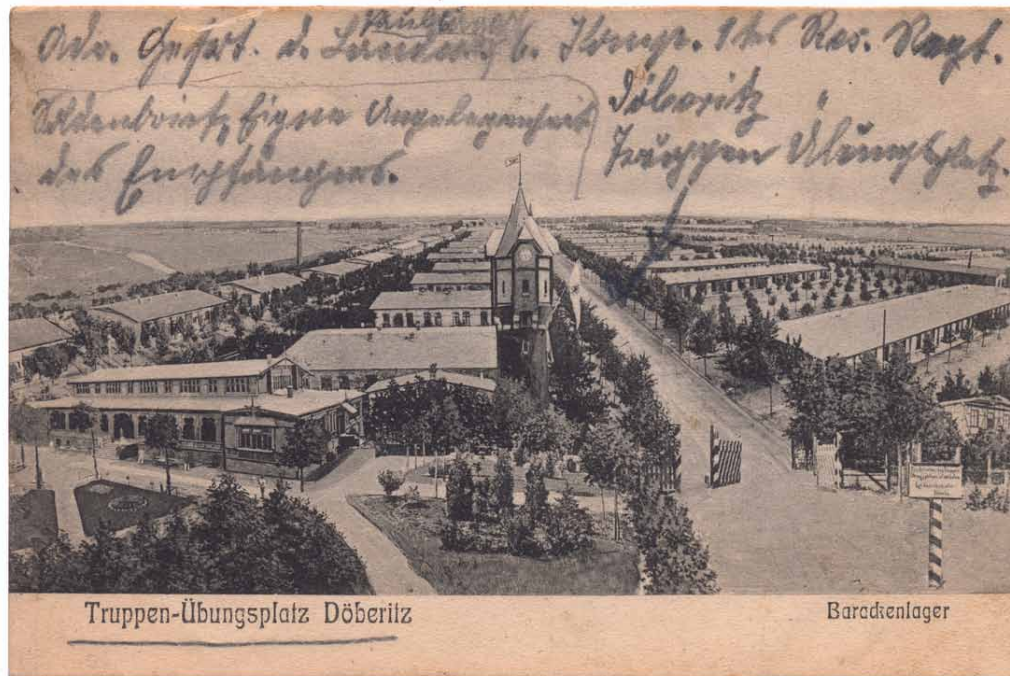 Adr. Gefrt. d. Landw. 6. Komp. 1tes Res. Regt.
Soldatenbrief, Eigene Angelegenheit
des Empfängers.
Döberitz
Truppen Übungsplatz.
Truppen-Übungsplatz Döberitz
Barackenlager